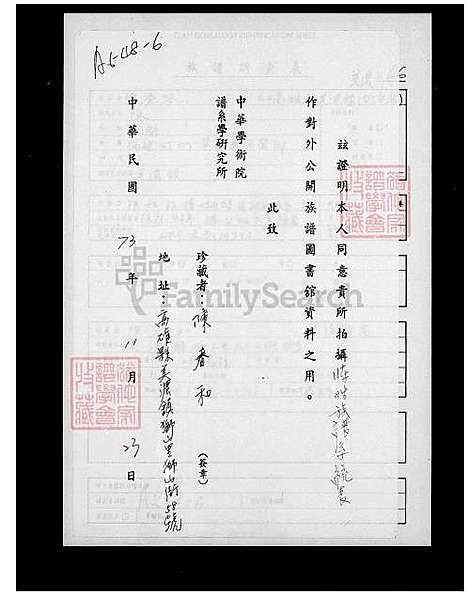 A548-6
茲證明本人同意貴所拍攝陳姓族譜
作對外公開族譜圖書館資料之用。
此致
中華學術院
譜系學研究所
珍藏者：陳春和（簽章）
地址：高雄縣美濃鎮獅山里獅山街58號
中華民國73年11月23日
FamilySearch